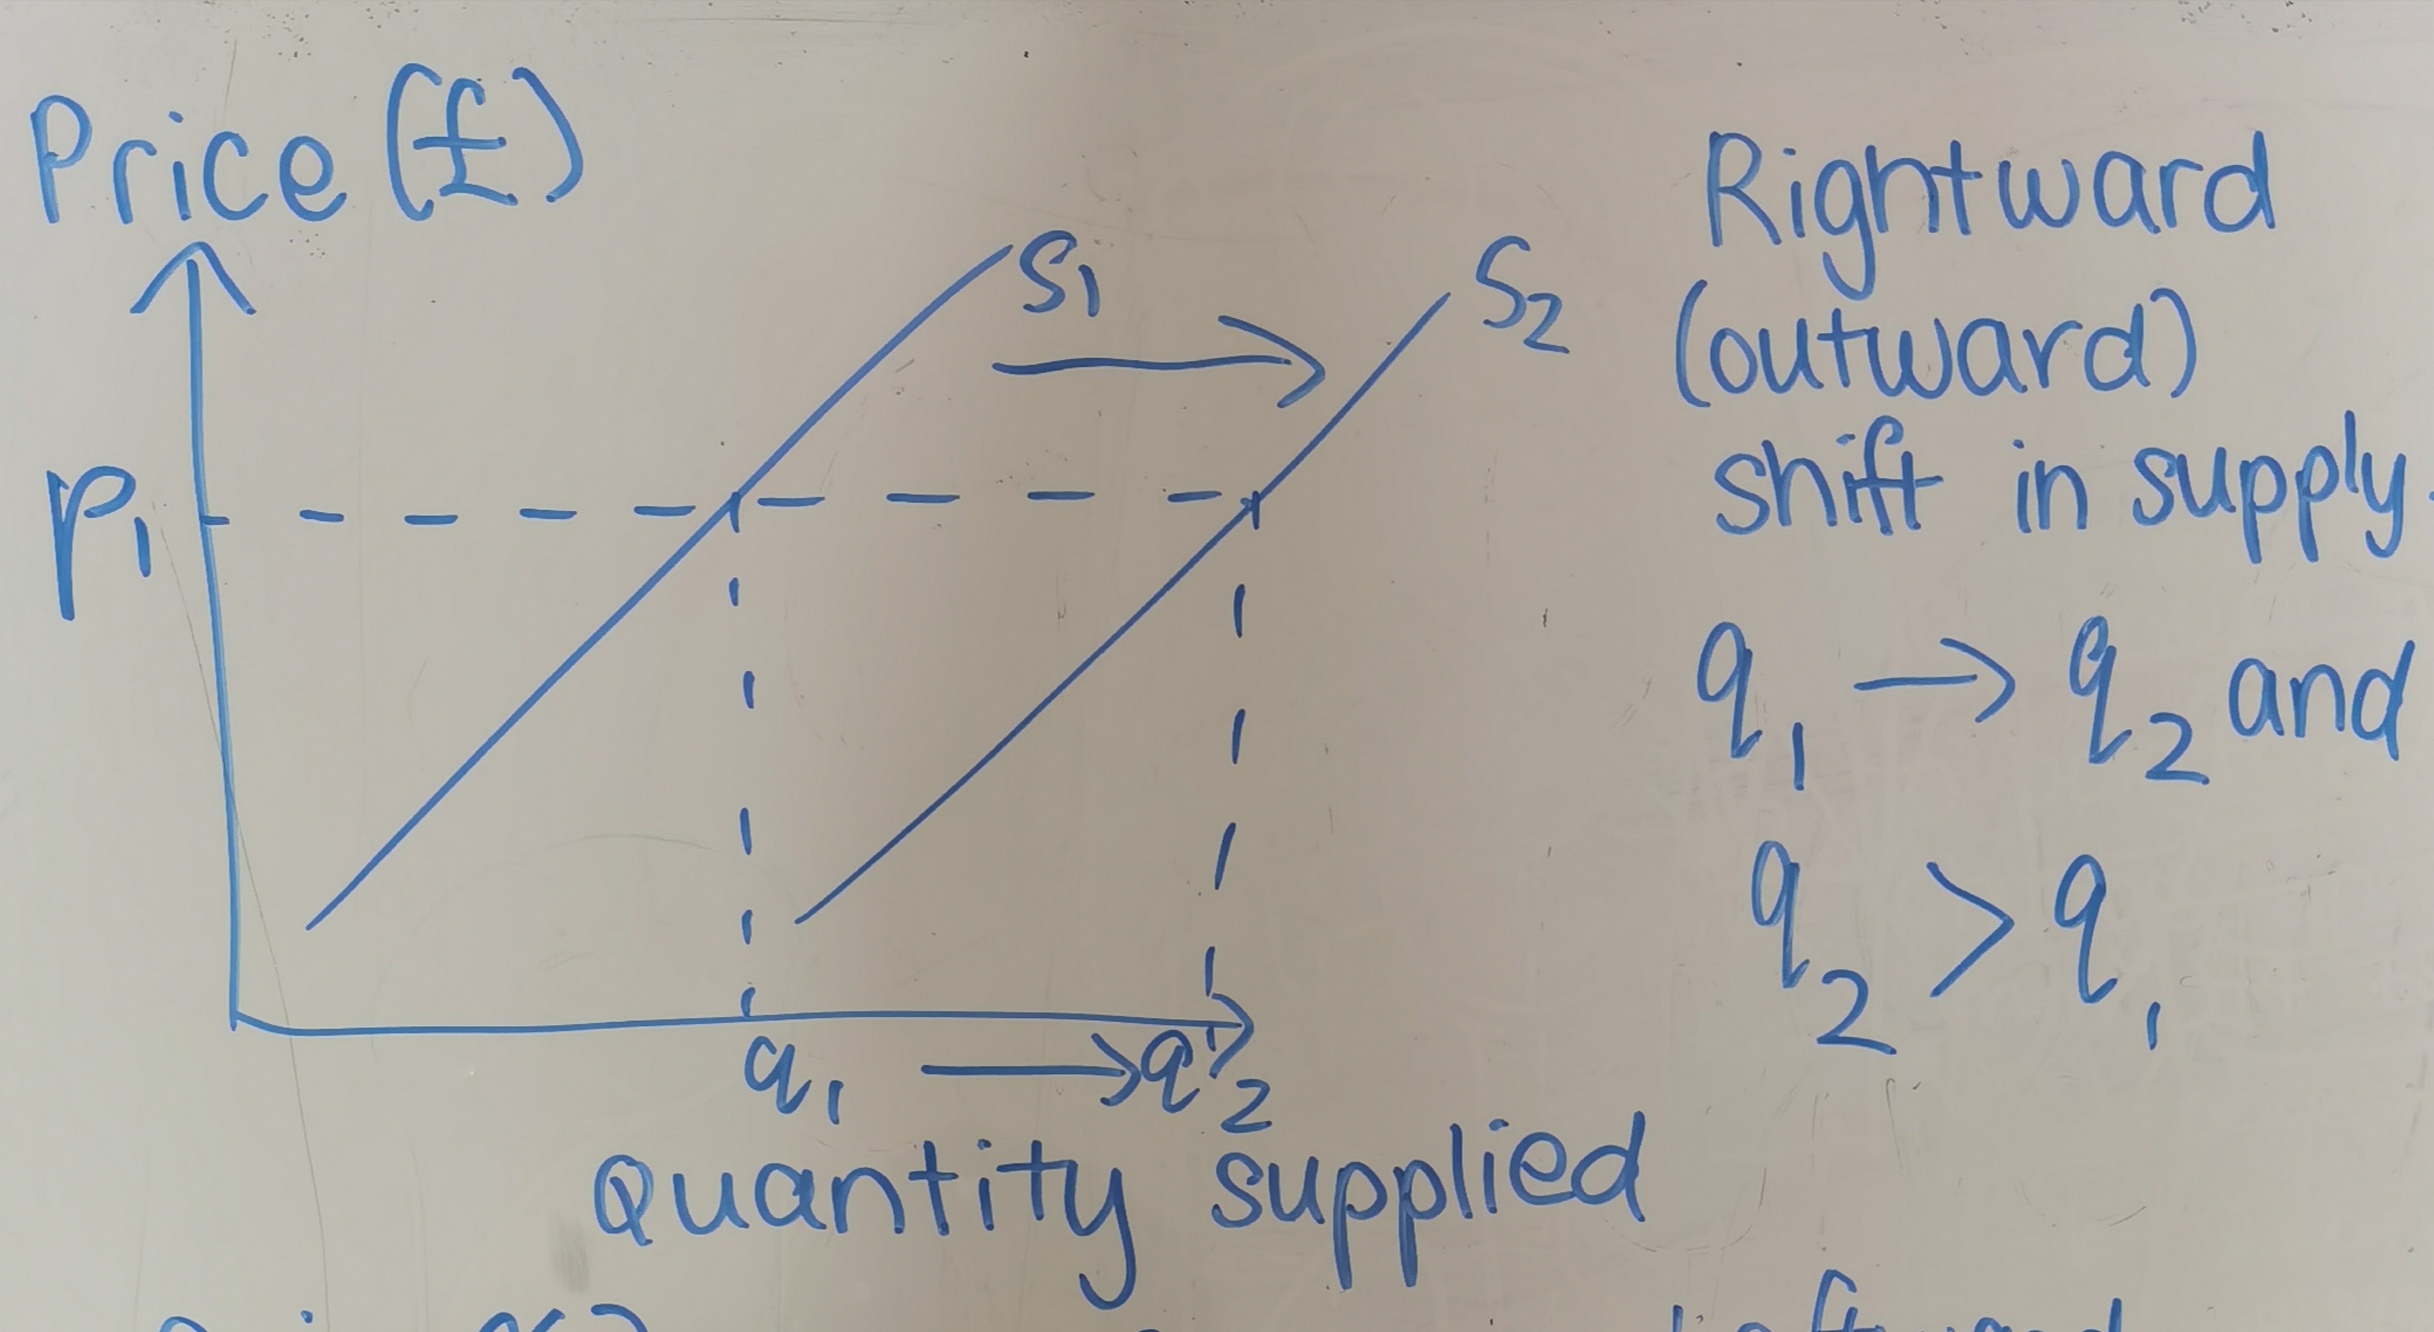 Price (£)
S₁
S₂
P₁
q₁ → q₂
Quantity supplied
Rightward
(outward)
shift in supply.
q₁ → q₂ and
q₂ > q₁